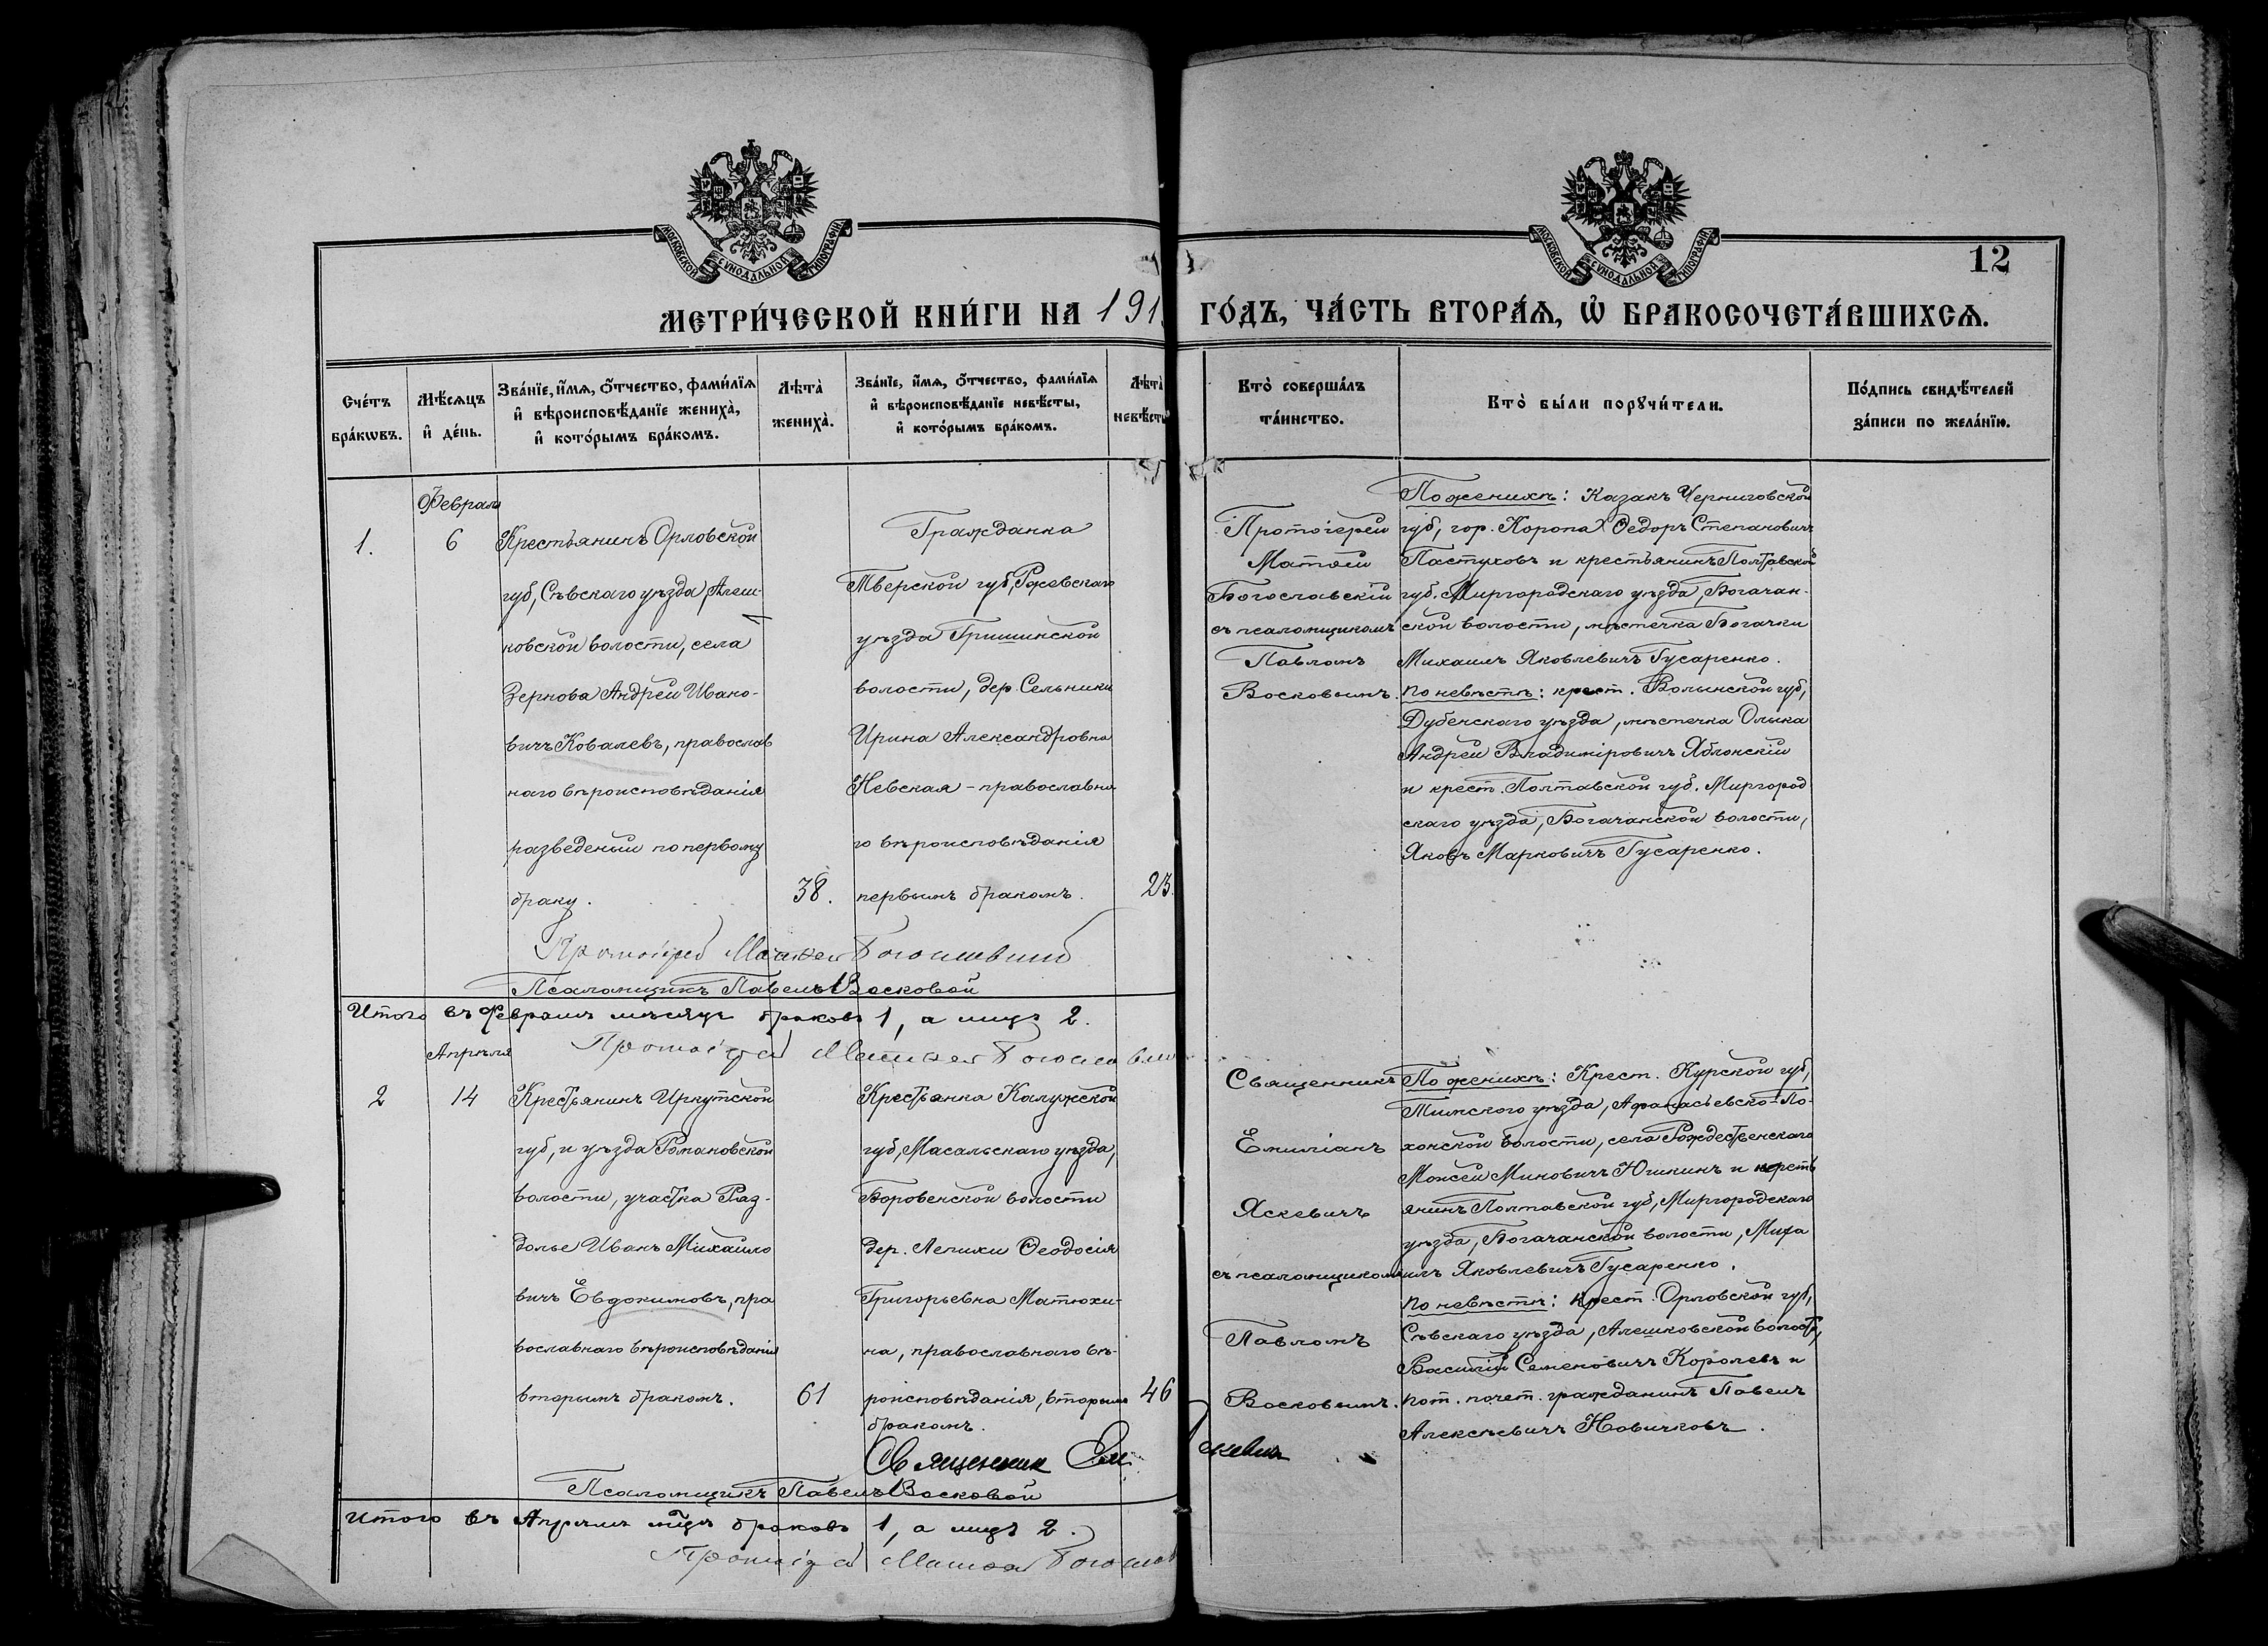 МОСКОВСКОЙ СѴНОДАЛЬНОЙ ТИПОГРАФІИ
МОСКОВСКОЙ СѴНОДАЛЬНОЙ ТИПОГРАФІИ
12
МЕТРИ́ЧЕСКОЙ КНИ́ГИ НА 191
ГО́ДЪ, ЧА́СТЬ ВТОРА́Ѧ, Ѡ҆ БРАКОСОЧЕТА́ВШИХСѦ.
Сче́тъ
бра́кѡвъ.
Мѣ́сѧцъ
и҆ де́нь.
Зва́нїе, и҆́мѧ, о҆́тчество, фами́лїѧ
и҆ вѣроисповѣ́данїе жениха̀,
и҆ кото́рымъ бра́комъ.
Лѣта̀
жениха̀.
Зва́нїе, и҆́мѧ, о҆́тчество, фами́лїѧ
и҆ вѣроисповѣ́данїе невѣ́сты,
и҆ кото́рымъ бра́комъ.
Лѣта̀
невѣ́сты
Кто̀ соверша́лъ
та́инство.
Кто̀ бы́ли порꙋчи́тели.
По́дпись свидѣ́телей
за́писи по жела́нїю.
Февраля
1.
6
Крестьянинъ Орловской
губ, Сѣвскаго уѣзда, Алеш-
ковской волости, села
Зернова Андрей Ивано-
вичъ Ковалевъ, православ
наго вѣроисповѣданія
разведеный по первому
браку.
38.
Гражданка
Тверской губ, Ржевскаго
уѣзда Гришинской
волости, дер. Сельники
Ирина Александровна
Невская - православна
го вѣроисповѣданія
первымъ бракомъ.
23.
Протоіерей
Матѳей
Богославскій
съ псаломщикомъ
Павломъ
Восковымъ.
По женихѣ: Казакъ Черниговской
губ, гор. Коропа Ѳедоръ Степановичъ
Пастуховъ и крестьянинъ Полтавской
губ. Миргородскаго уѣзда, Богачан-
ской волости, мѣстечка Богачки
Михаилъ Яковлевичъ Гусаренко.
По невѣстѣ: крест. Волынской губ,
Дубенскаго уѣзда, мѣстечка Олыка
Андрей Владиміровичъ Яблонскій
и крест. Полтавской губ. Миргород
скаго уѣзда, Богачанской волости,
Яковъ Марковичъ Гусаренко.
Протоіерей Матѳей Богославскій
Псаломщикъ Павелъ Восковой
Итого въ Февралѣ мѣсяцѣ браковъ 1, а лицъ 2.
Протоіерей Матѳей Богослав
Апрѣля
2
14
Крестьянинъ Иркутской
губ, и уѣзда Романовской
волости, участка Раз-
долье Иванъ Михайло
вичъ Евдокимовъ, пра
вославнаго вѣроисповѣданія
вторымъ бракомъ.
61
Крестьянка Калужской
губ, Масальскаго уѣзда,
Боровенской волости
дер. Лепихи Ѳеодосія
Григорьевна Матюхи-
на, православнаго вѣ-
роисповѣданія, вторымъ
бракомъ.
46
Священникъ
Емиліанъ
Яскевичъ
съ псаломщикомъ
Павломъ
Восковымъ.
По женихѣ: Крест. Курской губ,
Тимского уѣзда, Афанасьевско-По-
хонской волости, села Рождественскаго
Моисей Миновичъ Юшкинъ и кресть
янинъ Полтавской губ, Миргородскаго
уѣзда, Богачанской волости, Миха
илъ Яковлевичъ Гусаренко.
По невѣстѣ: Крест. Орловской губ,
Сѣвскаго уѣзда, Алешковской волости,
Василій Семеновичъ Королевъ и
пот. почет. гражданинъ Павелъ
Алексѣевичъ Новичковъ.
Священник Ем
скевич
Псаломщикъ Павелъ Восковой
Итого въ Апрѣлѣ мцѣ браковъ 1, а лицъ 2.
Протоіерей Матѳей Богослов